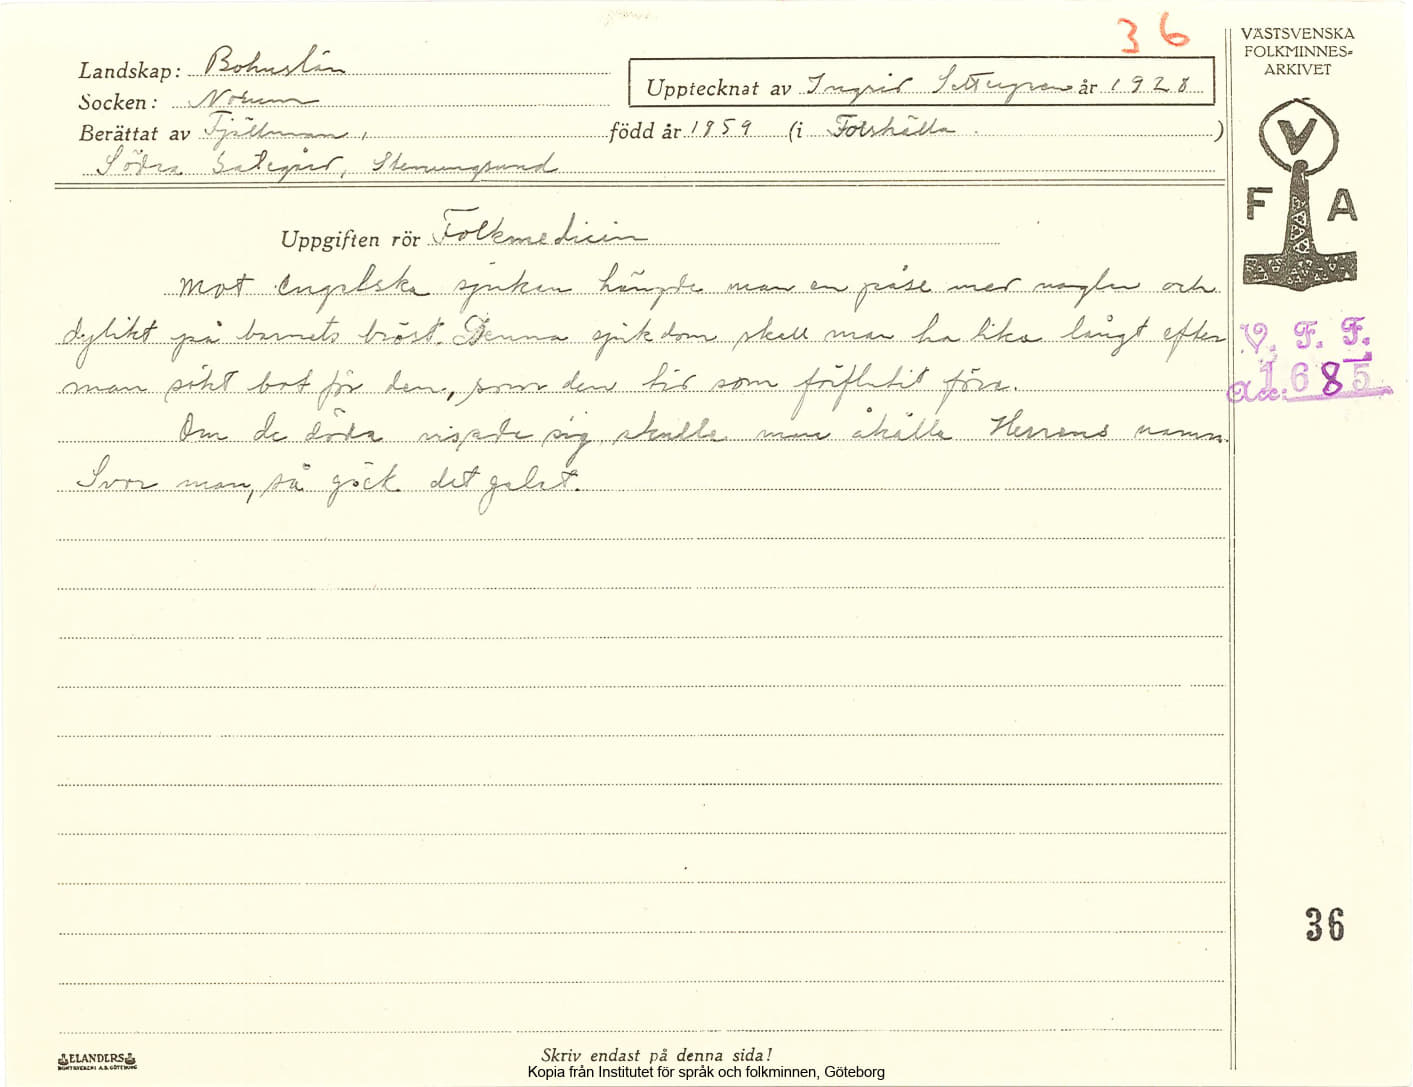 36
Landskap: Bohuslän
Socken: Norum
Upptecknat av Ingrid Settergren år 1928
Berättat av Fjällman, född år 1859 (i Forshälla.)
Södra gård, Stenungsund
Uppgiften rör Folkmedicin
Mot Engelska sjukan hängde man en påse med naglar och
dylikt på barnets bröst. Denna sjukdom skall man ha lika långt efter
man sökt bot för den, som den tid som förflutit förr.
Om de döda visade sig skulle man åkalla Herrens namn.
Svor man, så gick det galet.
VÄSTSVENSKA
FOLKMINNES-
ARKIVET
V
F A
V. F. F.
Acc: 1685
36
ELANDERS
Skriv endast på denna sida!
Kopia från Institutet för språk och folkminnen, Göteborg